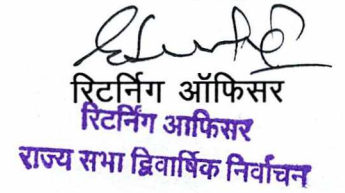 रिटर्निग ऑफिसर
रिटर्निंग आफिसर
राज्य सभा द्विवार्षिक निर्वाचन